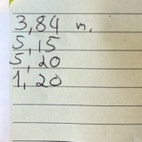 3,84 n.
5,15
5,20
1,20